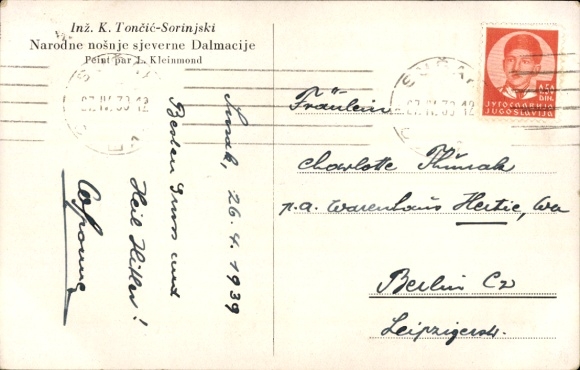 Inž. K. Tončić-Sorinjski
Narodne nošnje sjeverne Dalmacije
Peint par L. Kleinmond
27.IV.39.12
27.IV.39.12
1.50
DIN.
ЈУГОСЛАВИЈА
JUGOSLAVIJA
Susak, 26.4.1939
Besten Gruss und
Heil Hitler!
Fräulein
Charlotte
p.a. Warenhaus Hertie,
Berlin C2
Leipzigerstr.